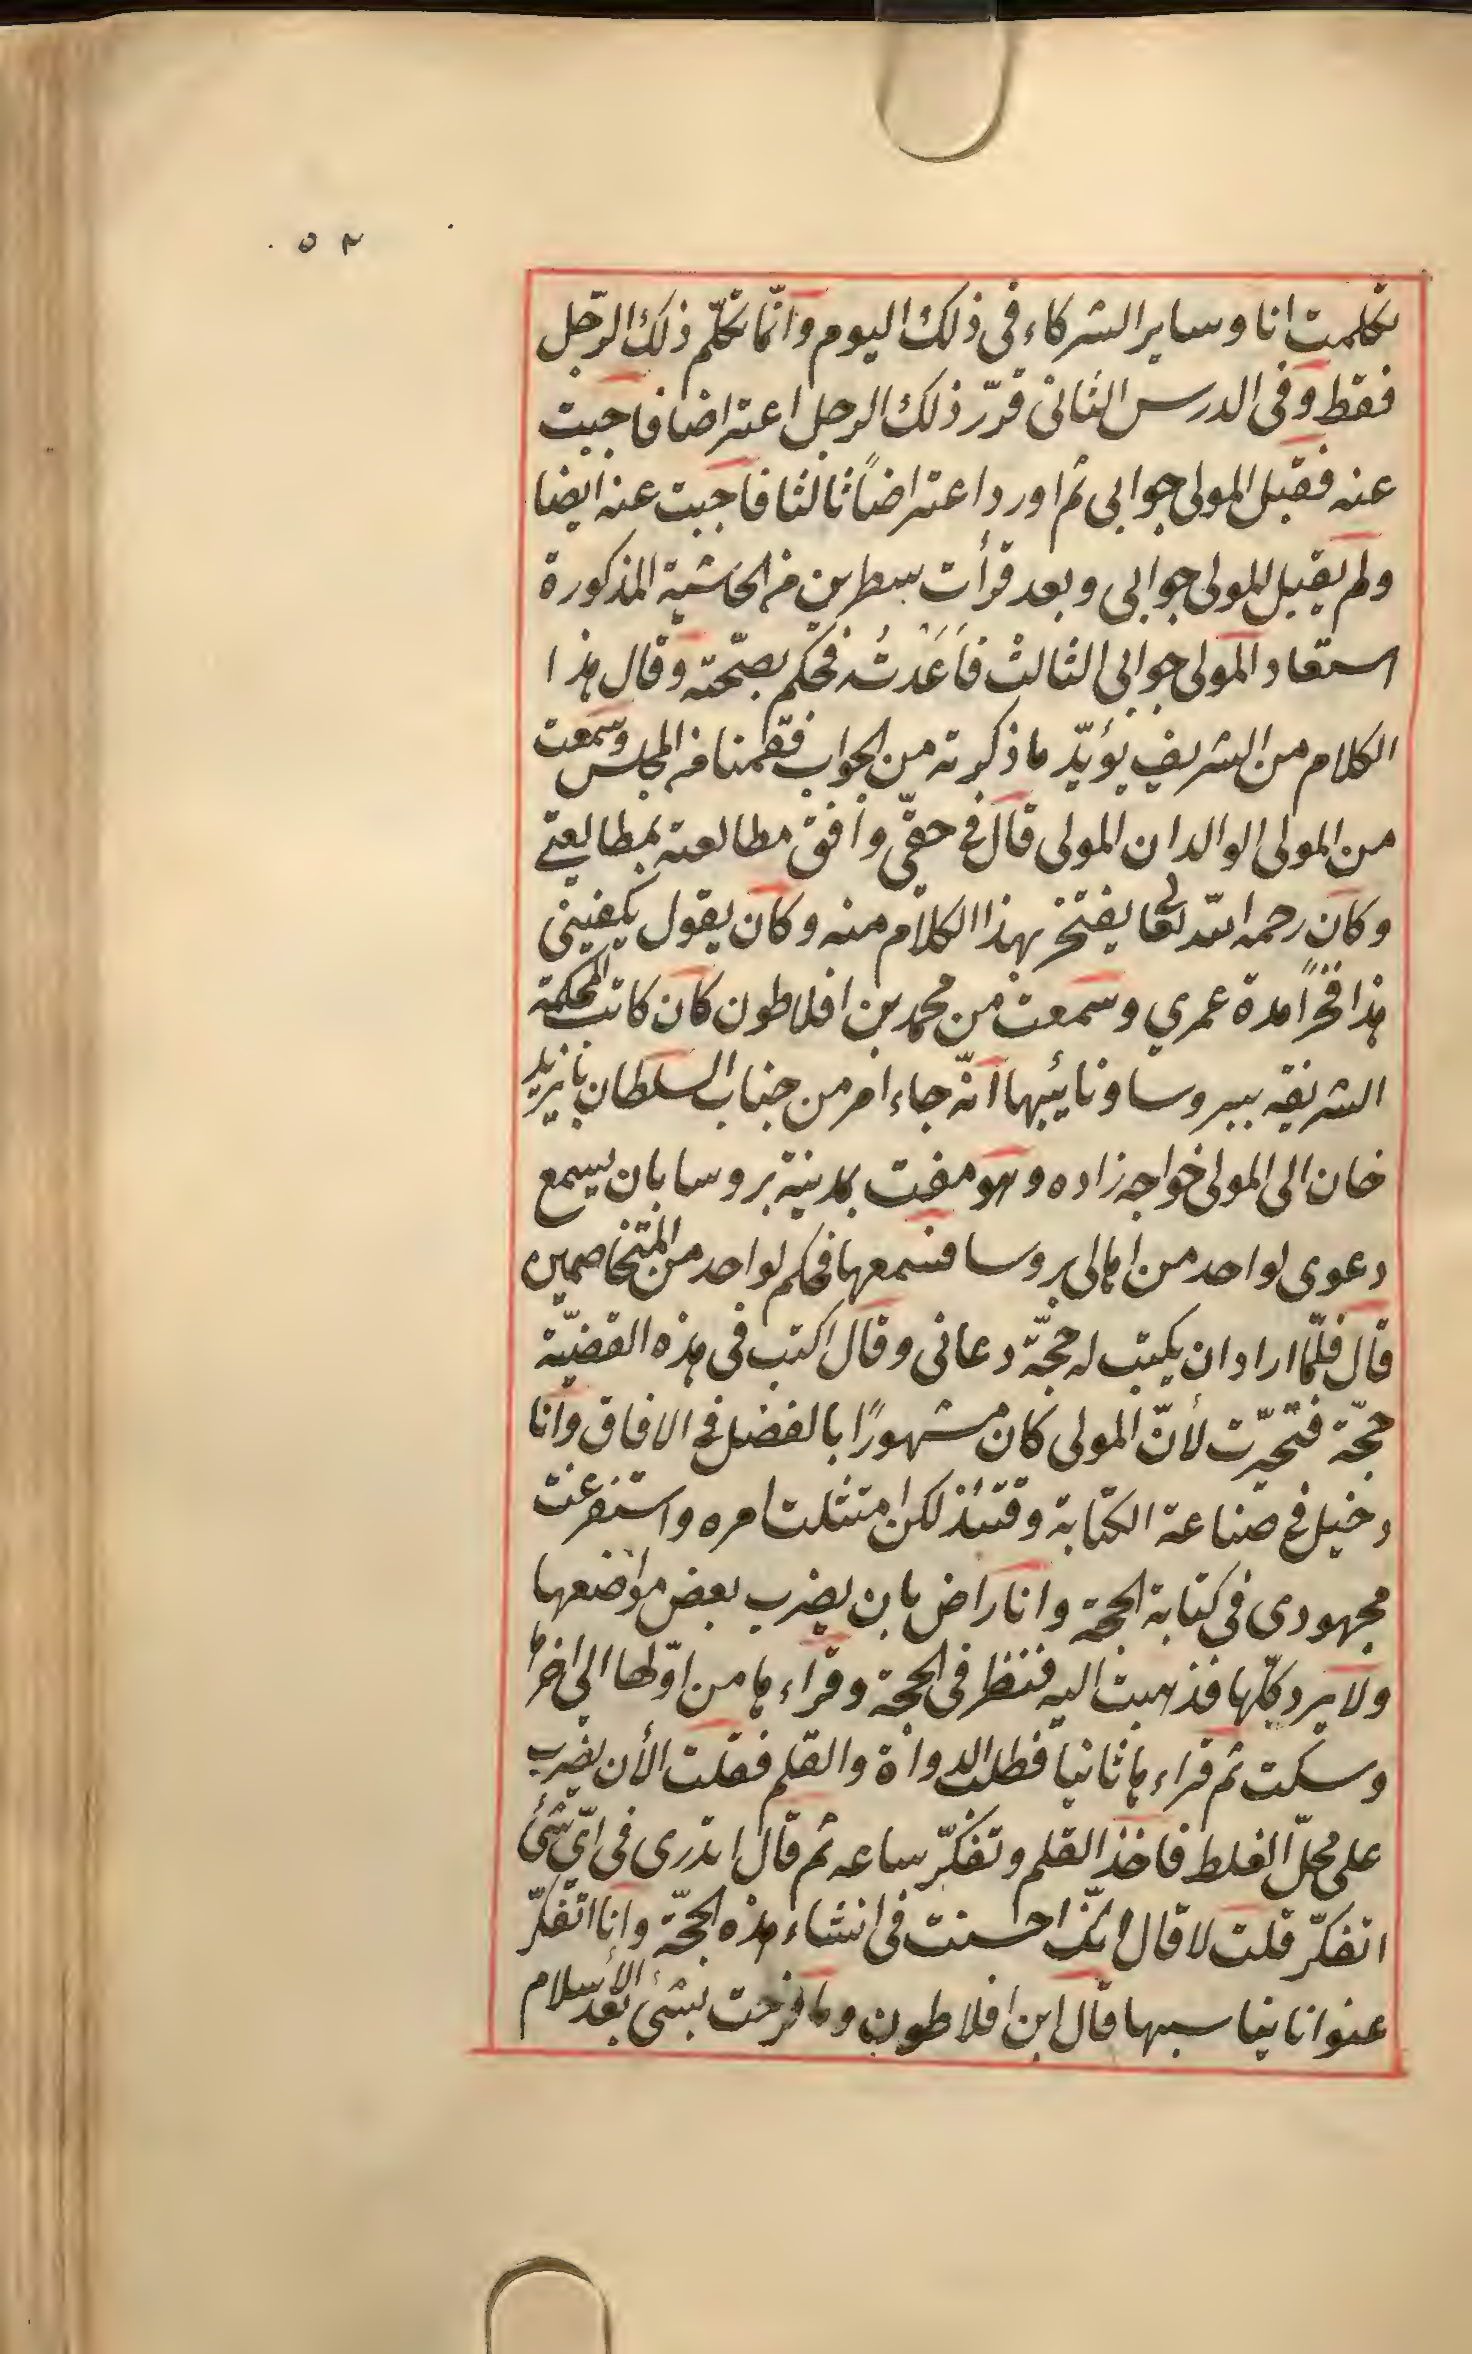 ٥٢
تكلمت انا وساير الشركاء فى ذلك اليوم وانّما تكلّم ذلك الرّجل
فقط وفى الدرس الثانى قرّر ذلك الرجل اعتراضا فاجبت
عنه فقبل المولى جوابى ثم اورد اعتراضاً ثالثا فاجبت عنه ايضا
ولم يقبل المولى جوابى وبعد قرأت سطرين من الحاشية المذكورة
استعاد المولى جوابى الثالث فَاَعَدْتُ فحكم بصحّته وقال هذا
الكلام من الشريف يؤيّد ما ذكرته من الجواب فقمنا من المجلس وسمعت
من المولى الوالد ان المولى قال فى حقّى وافق مطالعته بمطالعتى
وكان رحمه الله تعالى يفتخر بهذا الكلام منه وكان يقول يكفينى
هذا فخراً مدة عمري وسمعت من محمد بن افلاطون كان كاتب المحكمة
الشريفة ببروسا ونائيبها انّه جاء امر من جناب السلطان بايزيد
خان الى المولى خواجه زاده وهو مفت بمدينة بروسا بان يسمع
دعوى لواحد من اهالى بروسا فسمعها فحكم لواحد من المتخاصمين
قال فلمّا اراد ان يكتب له حجّة دعانى وقال اكتب فى هذه القضيّة
حجّة فتحيّرت لأنّ المولى كان مشهورًا بالفضل فى الافاق وانا
دخيل فى صناعة الكتابة وقتئذ لكن امتثلت امره واستفرغت
مجهودى فى كتابة الحجة وانا راض بان يضرب بعض مواضعها
ولا يرد كلّها فذهبت اليه فنظر فى الحجة وقراءها من اوّلها الى اخرها
وسكت ثم قراءها ثانيا فطلب الدواة والقلم فقلت الأن يضرب
على محلّ الغلط فاخذ القلم وتفكّر ساعه ثم قال اتدرى فى اىّ شئ
اتفكّر قلت لا قال انّك احسنت فى انشاء هذه الحجّة وانا اتفكّر
عنوانا يناسبها قال ابن افلاطون وما فرحت بشئ بعد الاسلام